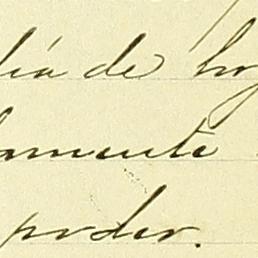 dia de hoy
damente
poder.